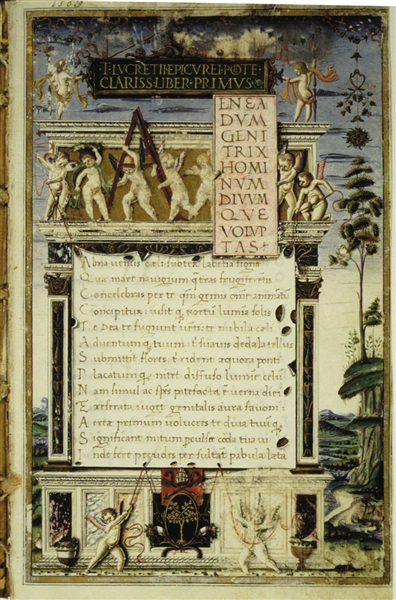 1569
·T·LVCRETII·EPICVREI·POTE·
CLARISS·LIBER·PRIMVS·
A
ENEA
DVM
GENI
TRIX
HOMI
NVM
DIVVM
QVE
VOLVP
TAS
Alma uenus cęli subter labētia signa
Quę mare nauigium q̄ tras frugiferētis
Concelebras per te qm̄ genus omē animātū
Concipitur uisit q̨ exortū lumia solis
Te Dea te fugiunt uēti te nubila cęli
Aduentum q̨ tuum t̄ suauis dędala tellus
Submittit flores t̄ rident ęquora ponti
Placatum q̨ nitet diffuso lumīe cęlū
Nam simul ac spēs patefacta ē uerna diei
Et reserata uiget genitalis aura fauoni
Aerię primum uolucres te diua tuū q̨
Significant initum pculse corda tua ui
Inde ferę pecudes persultāt pabula lęta